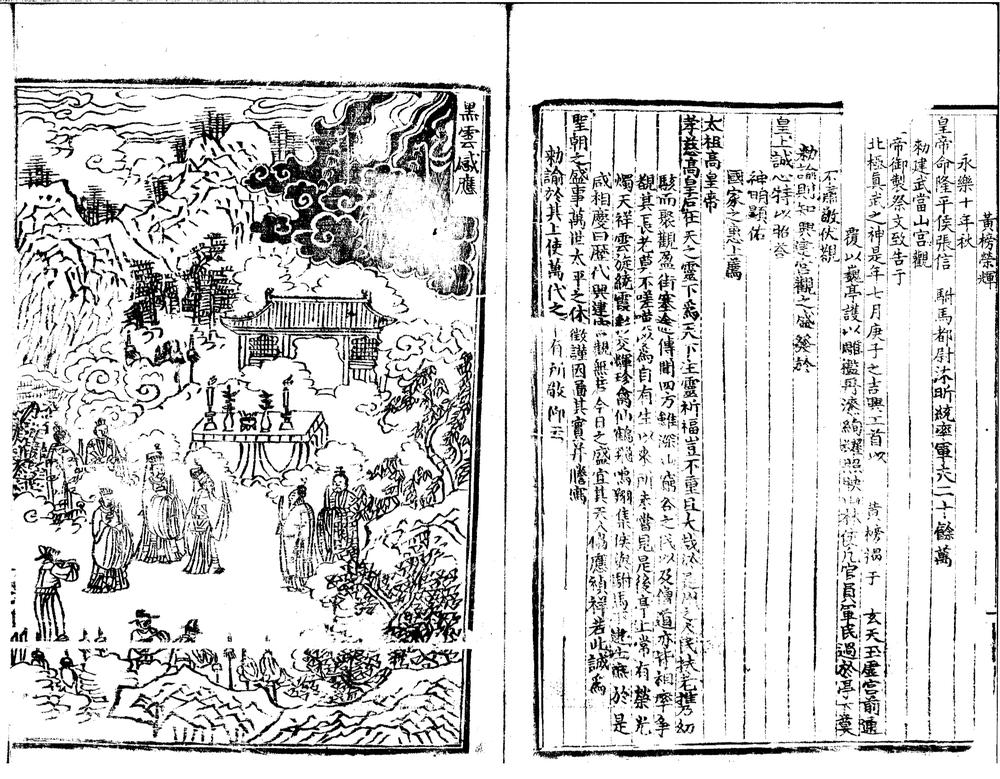 黃榜榮輝
永樂十年秋
皇帝命隆平侯張信　駙馬都尉沐昕統率軍夫二十餘萬
勑建武當山宮觀
帝御製祭文致告于
北極真武之神是年七月庚子之吉興工首以　黃榜揭于　玄天玉虛宮前建
覆以巍亭護以雕檻丹漆絢耀照映山林使凡官員軍民過於亭下莫
不肅敬伏觀
勑諭則知興建宮觀之盛發於
皇上誠心特以昭荅
神明顯佑
國家之惠上薦
太祖高皇帝
孝慈高皇后在天之靈下為天下生靈祈福豈不重且大哉
駭而聚觀盈街塞途傳聞四方雖深山窮谷之民以及傳道亦皆相率爭
觀其長老莫不嗟嘆以為自有生以來所未嘗見是後亭上常有榮光
燭天祥雲旋繞霞彩交輝珍禽仙鶴飛鳴翔集侯與駙馬
咸相慶曰歷代興建宮觀無甚今日之盛宜其天人協應禎祥若此誠為
聖朝之盛事萬世太平之休徵謹因啚其實并謄寫
勑諭於其上使萬代之有所敬仰云
黑雲感應